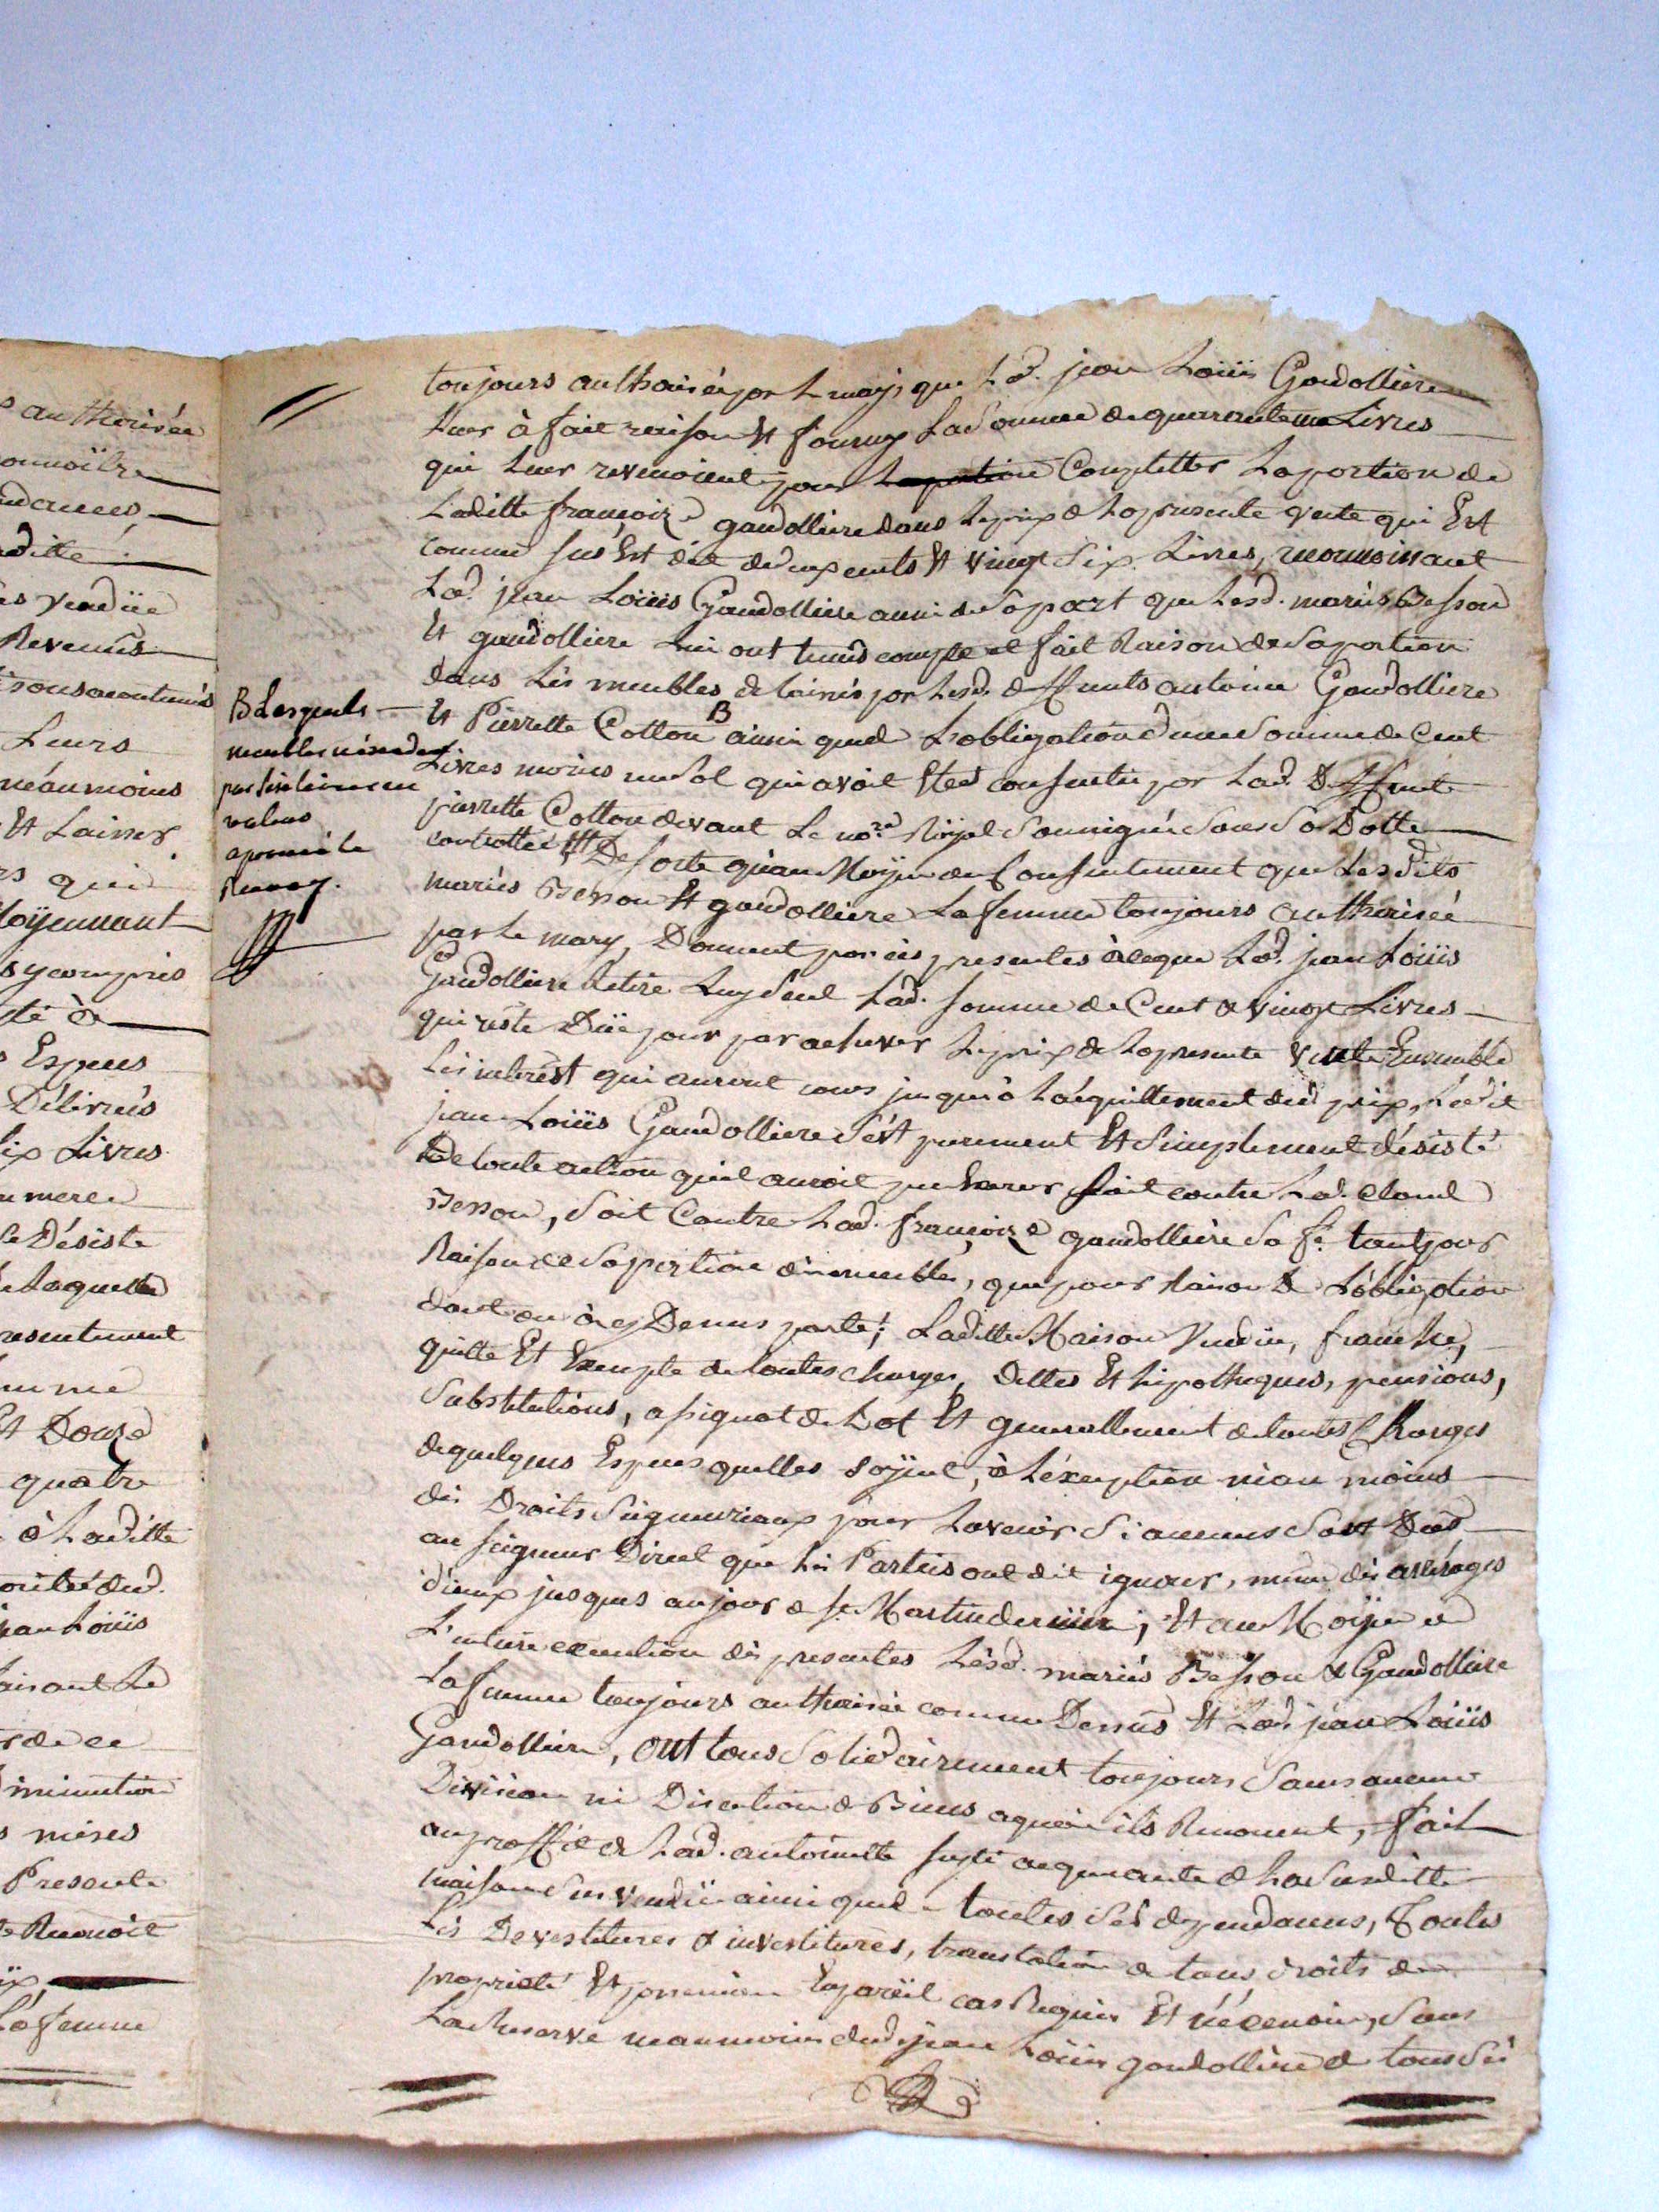 authorisée
connoître
ndances,
aditte
es vendüe
Revenus
Leurs
néanmoins
Et Laisser
rs qui
Moÿennant
s y compris
té à
Especes
Délivrés
six Livres
mere
se Désiste
Laquelle
resentement
Et Douze
quatre
à Laditte
orité dud.
jean Loüis
faisant Le
r de ce
iminution
s mises
Presente
Reçevoit
La femme
B Lesquels
meubles
valeur
aprouvé le
Renvoy.
toujours authorisée par Le mary que Led. jean Loüis Gandolliere
Leur à fait raison Et fourny La somme de quarante une Livres
qui Leur revenoient pour La portion Completter La portion de
Laditte françoize gandolliere dans Le prix de La presente vente qui Est
comme sus Est dit de deux cents Et vingt Six Livres, reconnoissant
Led. jean Loüis Gandolliere aussi de Sa part que Lesd. mariés Besson
Et gandolliere Lui ont tenus compte et fait Raison de Sa portion
dans Les meubles delaissés par Lesd. deffunts antoine Gandolliere
Et Pierrette Cotton B ainsi que de L'obligation d'une Somme de Cent
Livres moins un Sol qui avoit Eté consentie par Lad. Deffunte
pierrette Cotton devant Le no.re Roÿal Soussigné Sous Sa Datte
controllée De sorte qu'au Moÿen du Consentement que Lesdits
mariés Besson Et gandolliere La femme toujours authorisée
par Le mary, Donnent par ces presentes à ce que Led. jean Loüis
Gandolliere Retire Luy Seul Lad. somme de Cent & vingt Livres
qui reste Düe pour parachever Le prix de La presente Vente Ensemble
Les interest qui auront cours jusqu'à L'acquittement dud. prix, Ledit
jean Loüis Gandolliere s'est purement Et Simplement désisté
De toute action qu'il auroit pu Exercer Soit contre Led. Claude
Besson, Soit Contre Lad. françoize gandolliere Sa fe. tant pour
Raison de Sa portion des meubles, que pour Raison de L'obligation
dont on à cy Dessus parlé; Laditte Maison Vendüe, franche,
quitte Et Exempte de toutes charges, Dettes Et hipotheques, pensions,
Substitutions, assignat de Dot Et generallement de toutes Charges
de quelques Especes quelles soÿent, à L'éxception néan moins
des Droits Seigneuriaux pour L'avenir Si aucuns Sont Dus
au seigneur Direct que Les Parties ont dit ignorer, même des arrérages
d'iceux jusques au jour de St. Martin dernier; Et au Moÿen de
L'entiere execution des presentes Lesd. mariés Besson & Gandolliere
La femme toujours authorisée comme Dessus Et Led. jean Loüis
Gandolliere, ont tous Solidairement toujours Sans aucune
Division ni Discution de Biens a quoi ils Renoncent, fait
au proffit de Lad. antoinette acquerante de La Susditte
maison Sus vendüe ainsi que de toutes Ses dependances, Toutes
Les Devestitures & investitures, translation de tous droits de
proprieté Et possession En pareil cas Requis Et nécessaires, Sous
La Reserve neanmoins dud. jean Loüis gandolliere de tous Ses